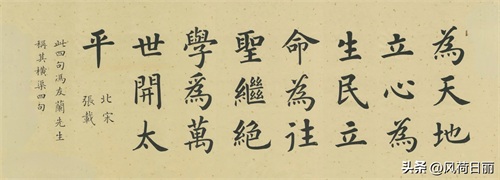 為天地
立心為
生民立
命為往
聖繼絕
學爲萬
世開太
平
北宋
張載
此四句馮友蘭先生
稱其橫渠四句
头条 @风荷日丽